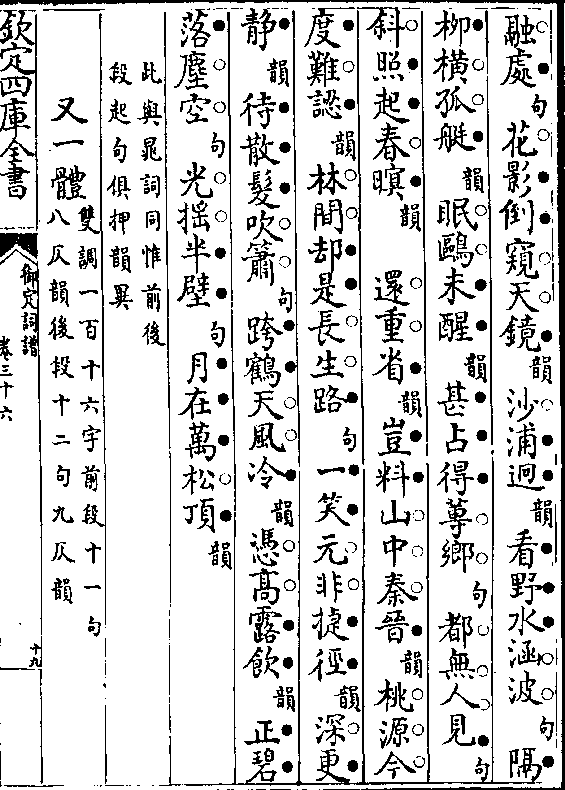 融處句花影倒窺天鏡韻沙浦迥韻看野水涵波句隔
柳橫孤艇韻眠鷗未醒韻甚占得蓴鄉句都無人見句
斜照起春暝韻還重省韻豈料山中秦晉韻桃源今
度難認韻林間却是長生路句一笑元非捷徑韻深更
靜韻待散髮吹簫句跨鶴天風冷韻憑高露飲韻正碧
落塵空句光揺半壁句月在萬松頂韻
此與晁詞同惟前後
段起句俱押韻異
又一體
雙調一百十六字前段十一句
八仄韻後段十二句九仄韻
欽定四庫全書
御定詞譜
卷三十六
十九